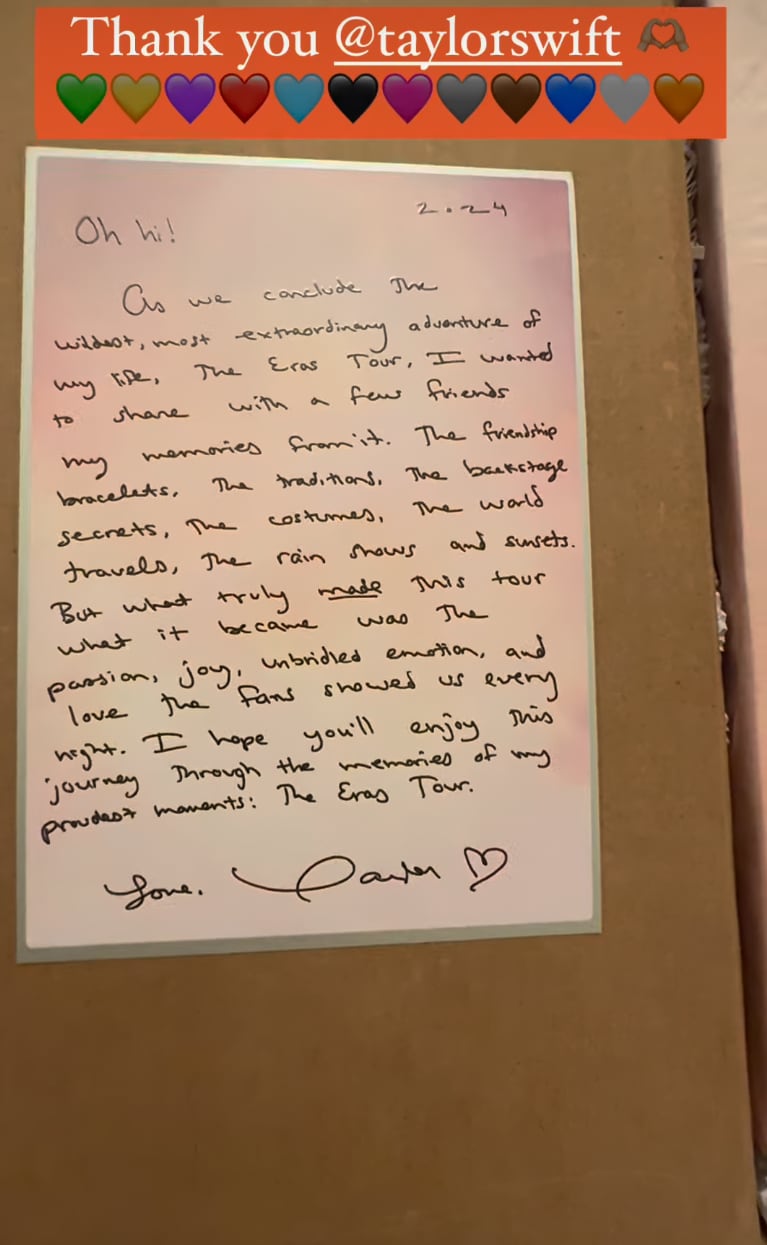 Thank you @taylorswift 🫶🏾
💚💛💜❤️🩵🖤🩷🩶🤎💙🤍🧡
2.24
Oh hi!
As we conclude the
wildest, most extraordinary adventure of
my life, The Eras Tour, I wanted
to share with a few friends
my memories from it. The friendship
bracelets, the traditions, the backstage
secrets, the costumes, the world
travels, the rain shows and sunsets.
But what truly made this tour
what it became was the
passion, joy, unbridled emotion, and
love the fans showed us every
night. I hope you'll enjoy this
journey through the memories of my
proudest moments: The Eras Tour.
Love, Taylor ♡